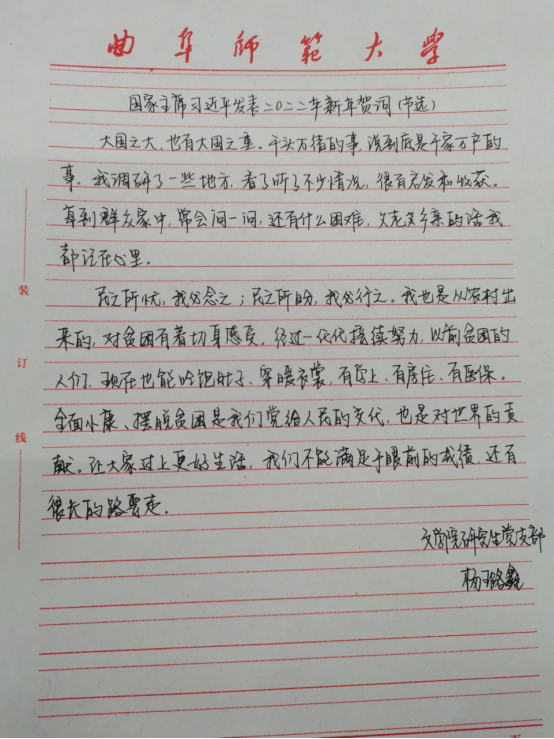 曲阜师范大学
国家主席习近平发表二〇二二年新年贺词（节选）
大国之大，也有大国之重。千头万绪的事，说到底是千家万户的
事。我调研了一些地方，看了听了不少情况，很有启发和收获。
每到群众家中，常会问一问，还有什么困难，父老乡亲的话我
都记在心里。
民之所忧，我必念之；民之所盼，我必行之。我也是从农村出
来的，对贫困有着切身感受。经过一代代接续努力，以前贫困的
人们，现在也能吃饱肚子、穿暖衣裳，有学上、有房住、有医保。
全面小康、摆脱贫困是我们党给人民的交代，也是对世界的贡
献。让大家过上更好生活，我们不能满足于眼前的成绩，还有
很长的路要走。
文学院研究生党支部
杨璐鑫
装
订
线